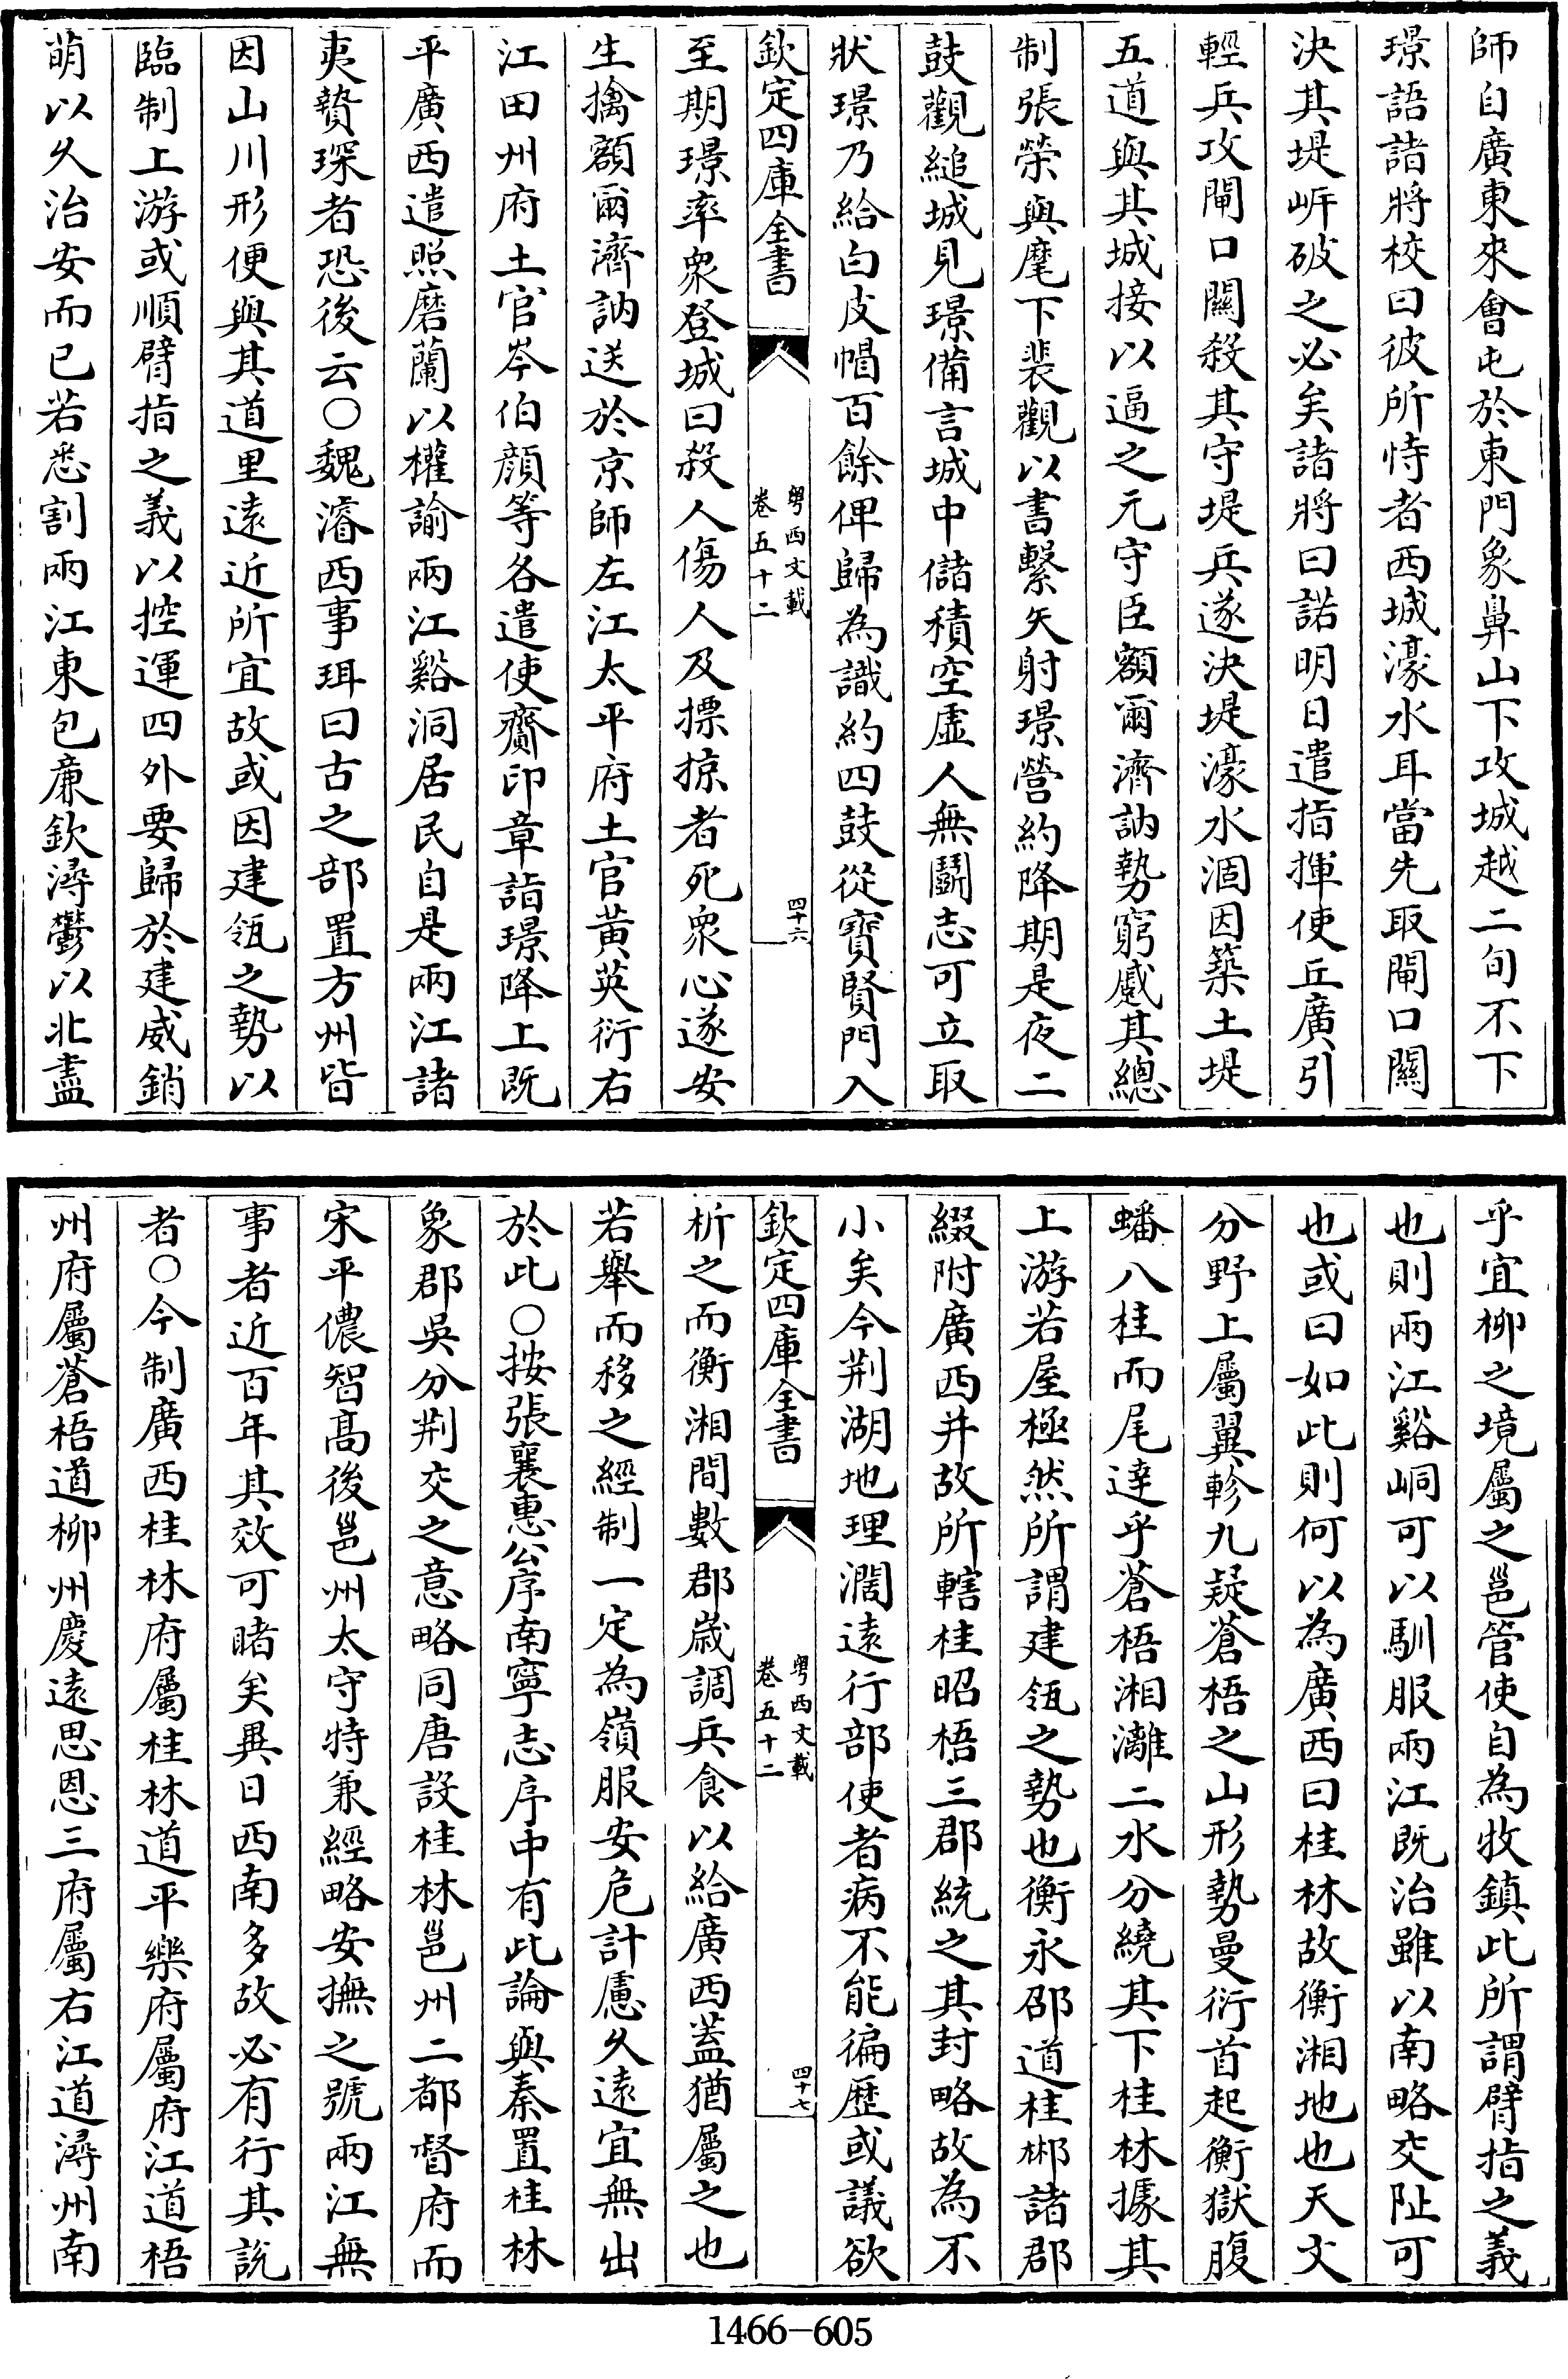 師自廣東來會屯於東門象鼻山下攻城越二旬不下
璟語諸將校曰彼所恃者西城濠水耳當先取閘口關
決其堤岍破之必矣諸將曰諾明日遣指揮使丘廣引
輕兵攻閘口關殺其守堤兵遂決堤濠水涸因築土堤
五道與其城接以逼之元守臣額爾濟訥勢窮感其總
制張榮與麾下裴觀以書繫矢射璟營約降期是夜二
鼓觀縋城見璟備言城中儲積空虛人無鬭志可立取
狀璟乃給白皮帽百餘俾歸為識約四鼓從寳賢門入
欽定四庫全書
粤西文載
卷五十二
四十六
至期璟率衆登城曰殺人傷人及摽掠者死衆心遂安
生擒額爾濟訥送於京師左江太平府土官黄英衍右
江田州府土官岑伯顔等各遣使齎印章詣璟降上既
平廣西遣照磨蘭以權諭兩江谿洞居民自是兩江諸
夷贄琛者恐後云○魏濬西事珥曰古之部置方州皆
因山川形便與其道里遠近所宜故或因建瓴之勢以
臨制上游或順臂指之義以控運四外要歸於建威銷
萌以久治安而已若悉割兩江東包亷欽潯鬱以北盡
乎宜柳之境屬之邕管使自為牧鎮此所謂臂指之義
也則兩江谿峒可以馴服兩江既治雖以南略交阯可
也或曰如此則何以為廣西曰桂林故衡湘地也天文
分野上屬翼軫九疑蒼梧之山形勢曼衍首起衡獄腹
蟠八桂而尾逹乎蒼梧湘灕二水分繞其下桂林據其
上游若屋極然所謂建瓴之勢也衡永邵道桂郴諸郡
綴附廣西并故所轄桂昭梧三郡統之其封略故為不
小矣今荆湖地理濶遠行部使者病不能徧歴或議欲
欽定四庫全書
粤西文載
卷五十二
四十七
析之而衡湘間數郡嵗調兵食以給廣西葢猶屬之也
若舉而移之經制一定為嶺服安危計慮久遠宜無出
於此○按張襄惠公序南寧志序中有此論與秦置桂林
象郡吳分荆交之意略同唐設桂林邕州二都督府而
宋平儂智髙後邕州太守特兼經略安撫之號兩江無
事者近百年其效可睹矣異日西南多故必有行其說
者○今制廣西桂林府屬桂林道平樂府屬府江道梧
州府屬蒼梧道柳州慶遠思恩三府屬右江道潯州南
1466-605